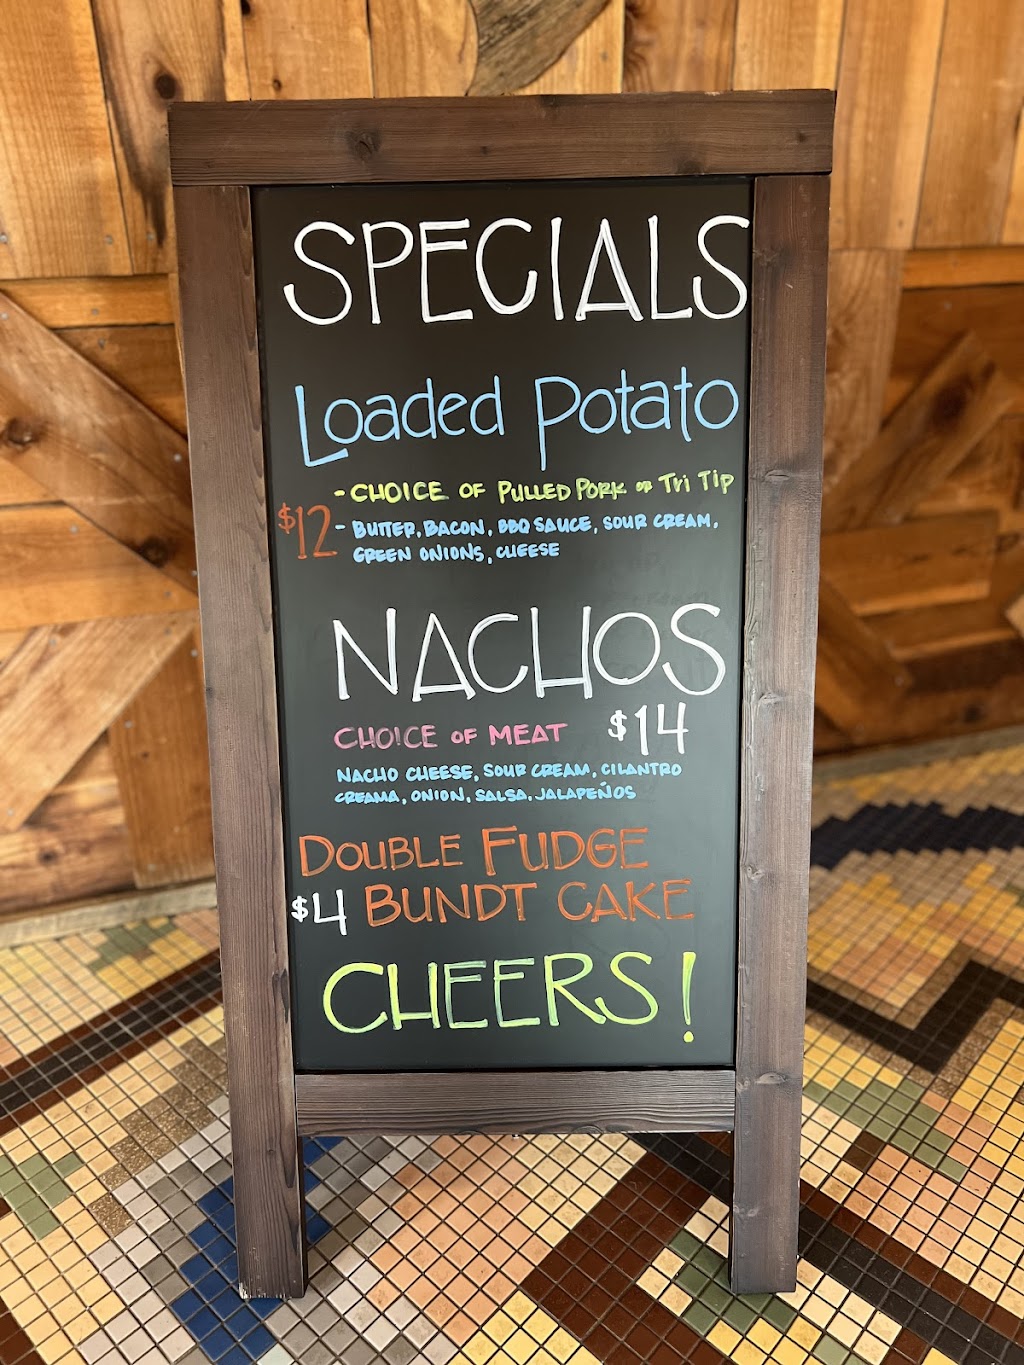 SPECIALS
Loaded Potato
- CHOICE OF PULLED PORK or Tri Tip
$12 - BUTTER, BACON, BBQ SAUCE, SOUR CREAM,
GREEN ONIONS, CHEESE
NACHOS
CHOICE OF MEAT $14
NACHO CHEESE, SOUR CREAM, CILANTRO
CREAMA, ONION, SALSA, JALAPEÑOS
DOUBLE FUDGE
$4 BUNDT CAKE
CHEERS!